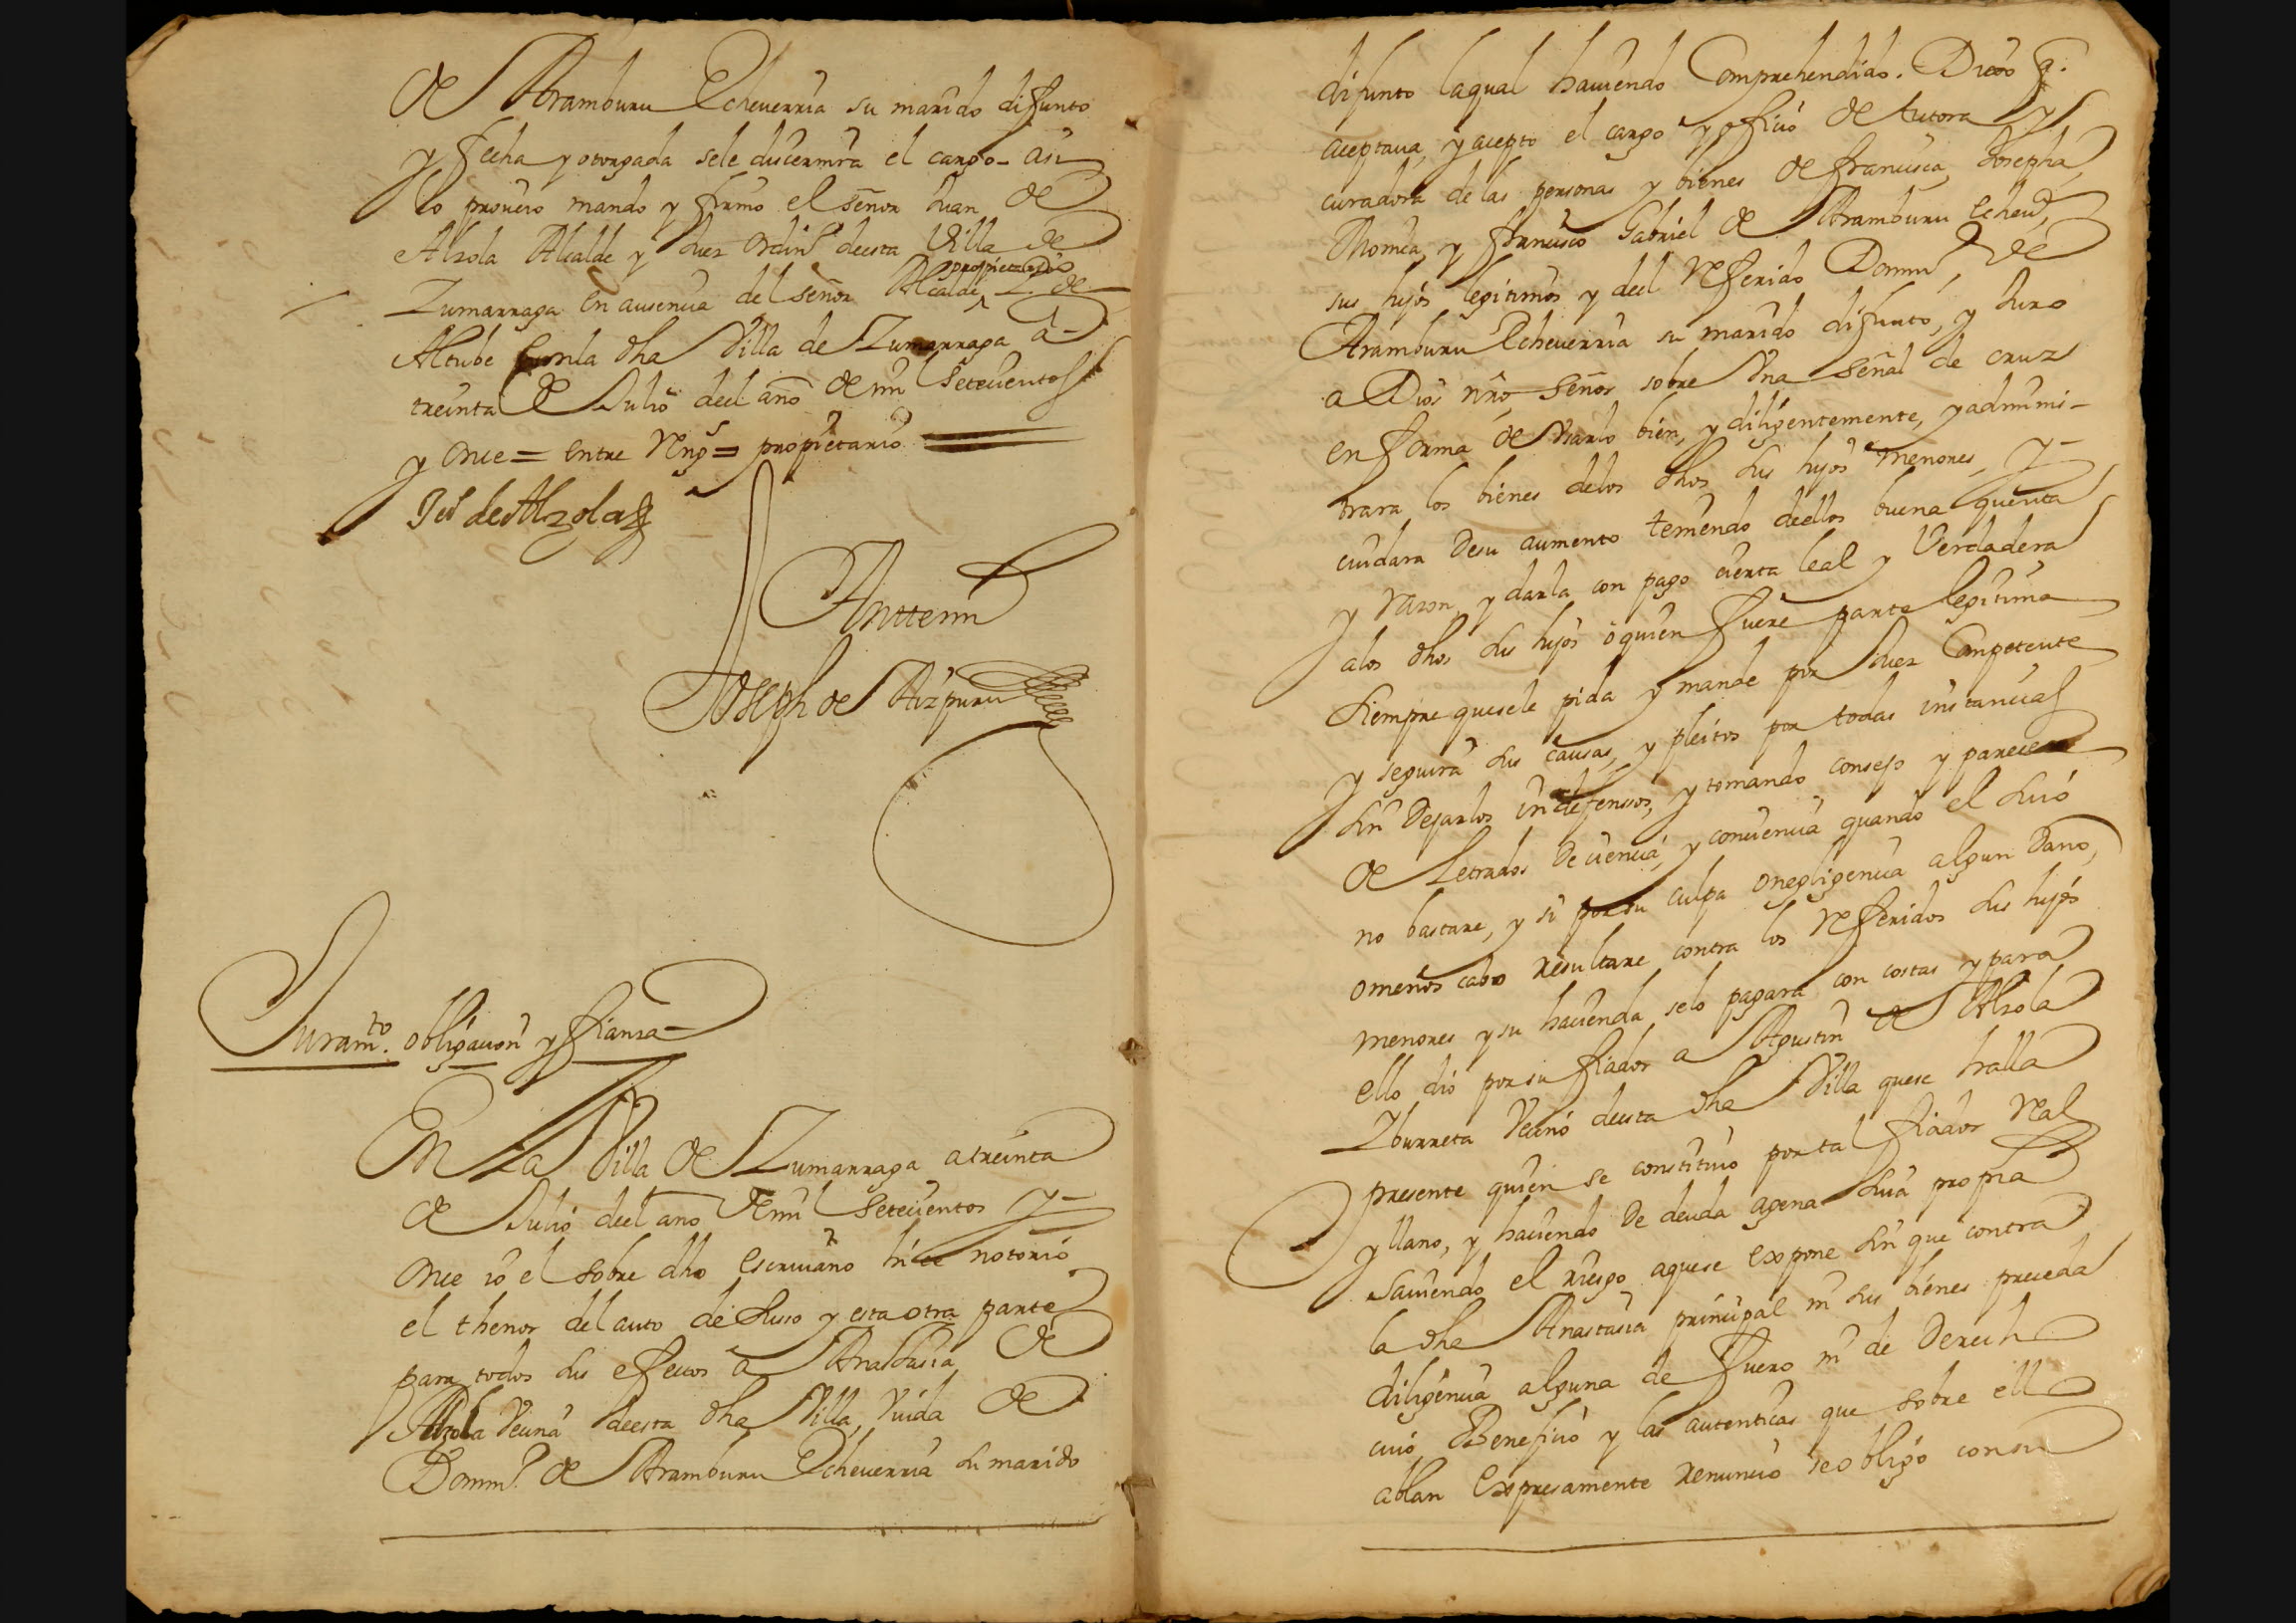 de Aramburu Echeverria su marido difunto
y fecha y otorgada sele discernira el cargo - asi
lo proueio mando y firmo el señor Juan de
Alzola Alcalde y Juez ordin.º deesta Villa de
Zumarraga en ausencia del señor Alcalde propietario de
Altube en la dha Villa de Zumarraga a
treinta de Julio deel año de mil Setecientos
y once = entre Reng.s = propietario
Ju.º de Alzola
Antemi
Joseph de Aizpuru
Juram.to obligacion y fianza
En La Villa de Zumarraga a treinta
de Julio deel año de mil Setecientos y
once io el sobre dho escriuano hice notorio
el thenor del auto de Suso y esta otra parte
para todos sus efectos a Anastasia de
Alzola Vecina deesta dha Villa, Viuda de
Domin.º de Aramburu Echeuerria su marido
difunto laqual hauiendo Comprehendido. Dixo q.
aceptaua, y acepto el cargo y oficio de tutora y
curadora de las personas y bienes de francisca, Josepha,
Thomasa, y francisco Gabriel de Aramburu echeu.ª
sus hijos legitimos y deel Referido Domin.º de
Aramburu Echeuerria su marido difunto, y Juro
a Dios nro señor sobre Vna señal de cruz
en forma de Vsarlo bien, y diligentemente, y adminis-
trara los bienes delos dhos sus hijos menores, y
cuidara Desu aumento teniendo deellos buena quenta
y razon, y darla con pago cierta leal y Verdadera
alos dhos sus hijos o quien fuere parte legitima
Siempre quesele pida y mande por Juez Competente
y seguira sus causas, y pleitos por todas instancias
sin Dejarlos indefensos, y tomando consejo y parecer
de Letrados De ciencia, y conciencia quando el suio
no bastare, y si por su culpa onegligencia algun Daño,
omenos cabo resultare contra los Referidos sus hijos
menores y su hacienda selo pagara con costas y para
ello dio por su fiador a Agustin de Alzola
Zburreta Vecino deesta dha Villa quese halla
presente quien se constituio por tal fiador Real
y llano, y haciendo De deuda agena Suia propia
Sauiendo el riesgo aquese expone sin que contra
la dha Anastasia principal ni sus bienes preceda
diligencia alguna de fuero ni de Derecho
cuio Beneficio y las autenticas que sobre ello
ablan Expresamente renuncio se obligo consu